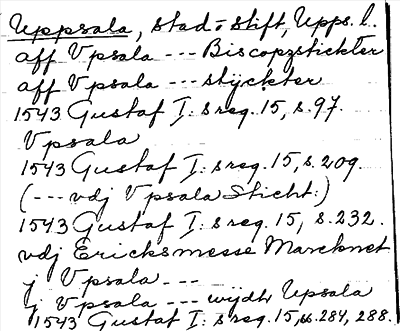 Uppsala, stad o. stift, Upps. l.
aff Vpsala --- Biscopzstickter
aff Vpsala --- styckter
1543 Gustaf I: s reg. 15, s. 97.
Vpsala
1543 Gustaf I: s reg. 15, s. 209.
(--- vdj Vpsala Sticht:)
1543 Gustaf I: s reg. 15, s. 232.
vdj Ericksmesse Marcknet
j Vpsala ---
j Vpsala --- wijdh Upsala
1543 Gustaf I: s reg. 15, ss. 284, 288.